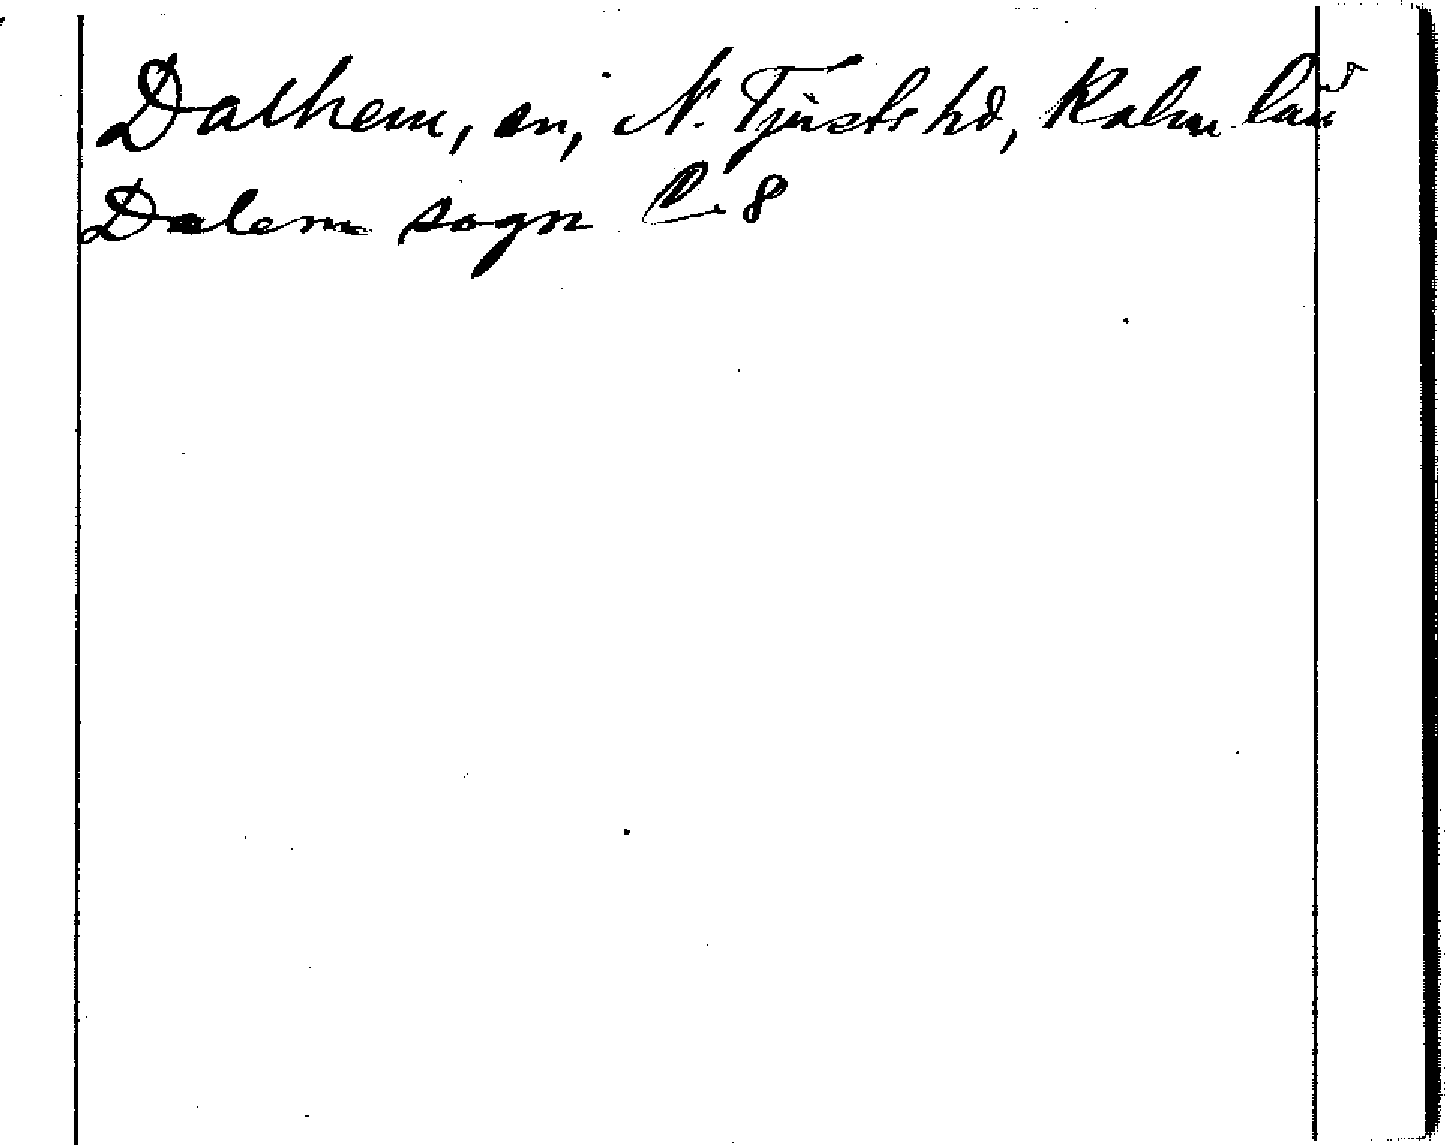 Dalhem, sn, N. Tjusts hd, Kalm. län
Dalem sogn C. 8